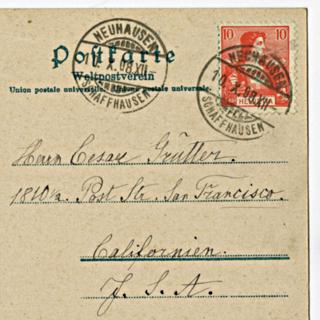 Postkarte
Weltpostverein
Union postale universelle. Unione postale universale.
NEUHAUSEN
X.08.XII
SCHAFFHAUSEN
10 10
HELVETIA
NEUHAUSEN
X.08.XII
SCHAFFHAUSEN
Herrn Cesar Grütter.
1810a. Post Str. San Francisco.
Californien.
U. S. A.